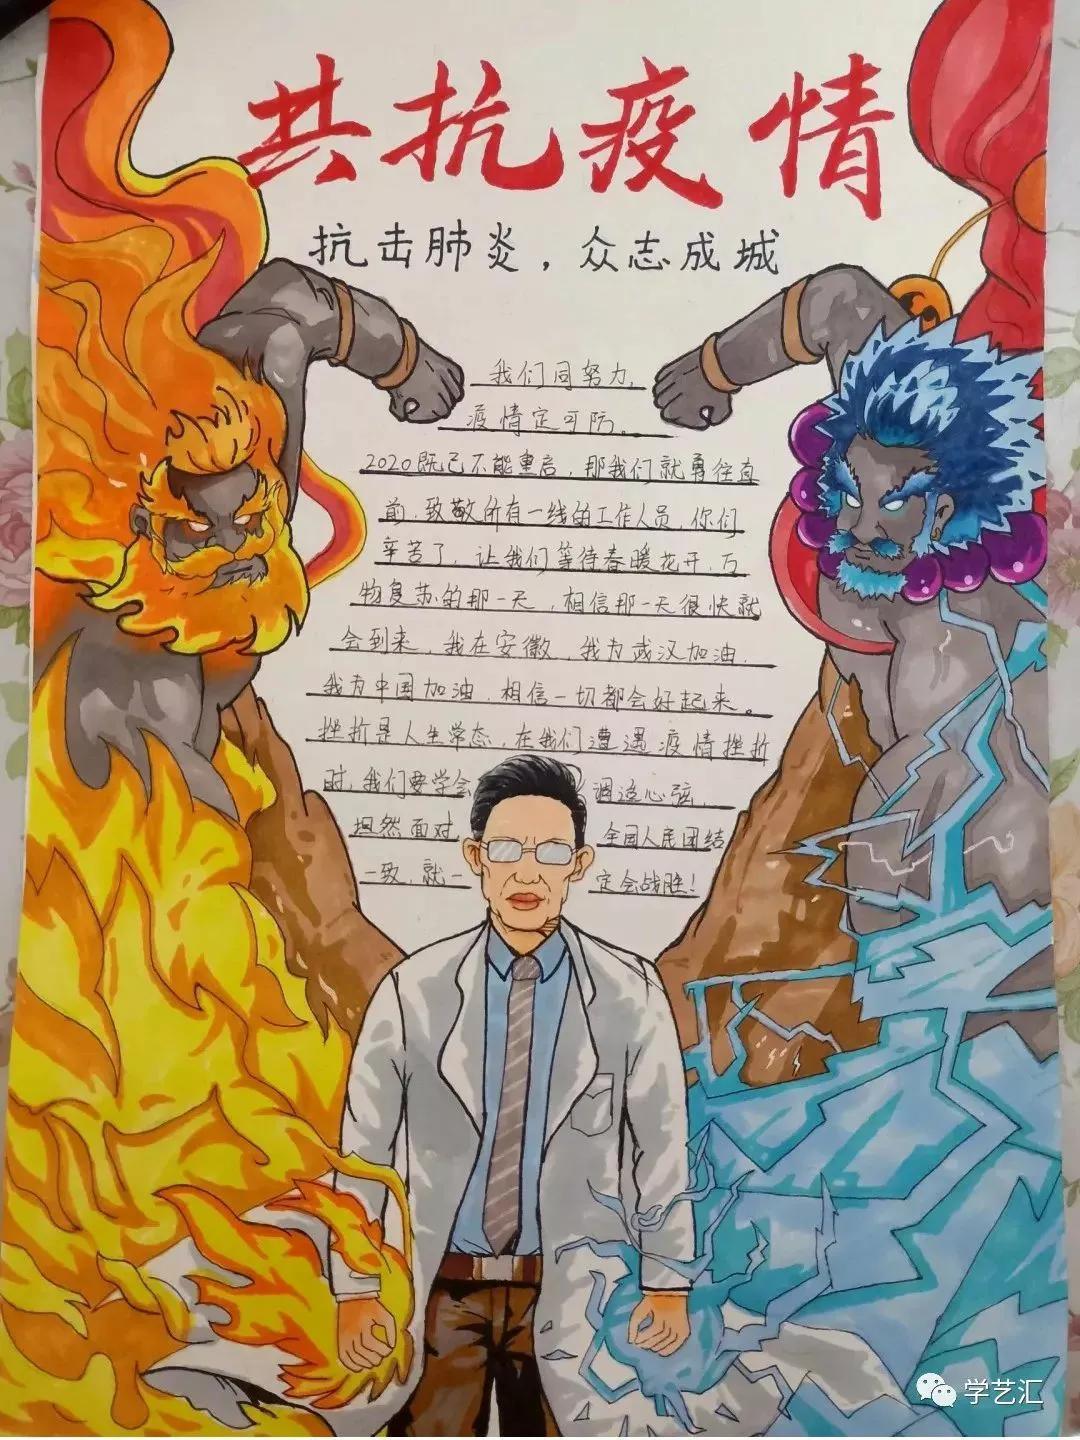 共抗疫情
抗击肺炎，众志成城
我们同努力，
疫情定可防。
2020既已不能重启，那我们就勇往直
前，致敬所有一线的工作人员，你们
辛苦了，让我们等待春暖花开，万
物复苏的那一天，相信那一天很快就
会到来，我在安徽，我为武汉加油，
我为中国加油，相信一切都会好起来。
挫折是人生常态，在我们遭遇疫情挫折
时，我们要学会 调适心弦，
坦然面对 全国人民团结
一致，就一 定会战胜！
学艺汇